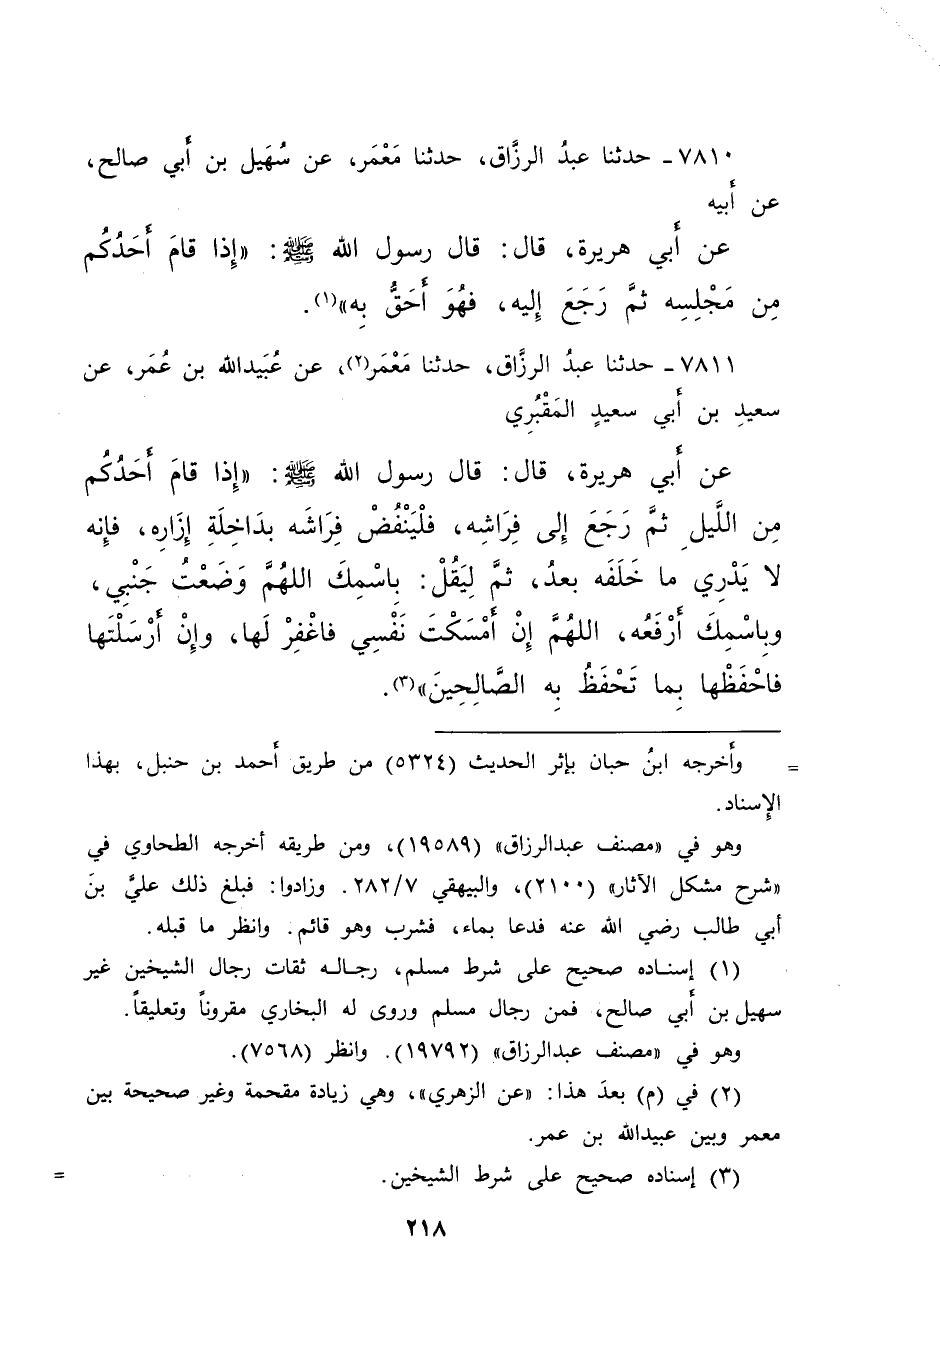 ٧٨١٠ ـ حدثنا عبدُ الرزَّاق، حدثنا مَعْمَر، عن سُهَيل بن أَبي صالح،
عن أَبيه
عن أَبي هريرة، قال: قال رسول الله ﷺ: «إِذا قامَ أَحَدُكُم
مِن مَجْلِسِه ثمَّ رَجَعَ إِليه، فهُوَ أَحَقُّ بِه»(١).
٧٨١١ ـ حدثنا عبدُ الرزَّاق، حدثنا مَعْمَر(٢)، عن عُبَيدالله بن عُمَر، عن
سعيدِ بن أَبي سعيدٍ المَقْبُرِي
عن أَبي هريرة، قال: قال رسول الله ﷺ: «إِذا قامَ أَحَدُكُم
مِن اللَّيلِ ثمَّ رَجَعَ إِلى فِرَاشِه، فلْيَنْفُضْ فِرَاشَه بدَاخِلَةِ إِزَارِه، فإِنه
لا يَدْرِي ما خَلَفَه بعدُ، ثمَّ لِيَقُلْ: بِاسْمِكَ اللهُمَّ وَضَعْتُ جَنْبِي،
وبِاسْمِكَ أَرْفَعُه، اللهُمَّ إِنْ أَمْسَكْتَ نَفْسِي فاغْفِرْ لَها، وإِنْ أَرْسَلْتَها
فاحْفَظْها بِما تَحْفَظُ بِه الصَّالِحِينَ»(٣).
= وأَخرجه ابنُ حبان بإثر الحديث (٥٣٢٤) من طريق أَحمد بن حنبل، بهذا
الإِسناد.
وهو في «مصنف عبدالرزاق» (١٩٥٨٩)، ومن طريقه أخرجه الطحاوي في
«شرح مشكل الآثار» (٢١٠٠)، والبيهقي ٢٨٢/٧. وزادوا: فبلغ ذلك عليَّ بنَ
أبي طالب رضي الله عنه فدعا بماء، فشرب وهو قائم. وانظر ما قبله.
(١) إسناده صحيح على شرط مسلم، رجاله ثقات رجال الشيخين غير
سهيل بن أَبي صالح، فمن رجال مسلم وروى له البخاري مقروناً وتعليقاً.
وهو في «مصنف عبدالرزاق» (١٩٧٩٢). وانظر (٧٥٦٨).
(٢) في (م) بعدَ هذا: «عن الزهري»، وهي زيادة مقحمة وغير صحيحة بين
معمر وبين عبيدالله بن عمر.
(٣) إسناده صحيح على شرط الشيخين. =
٢١٨